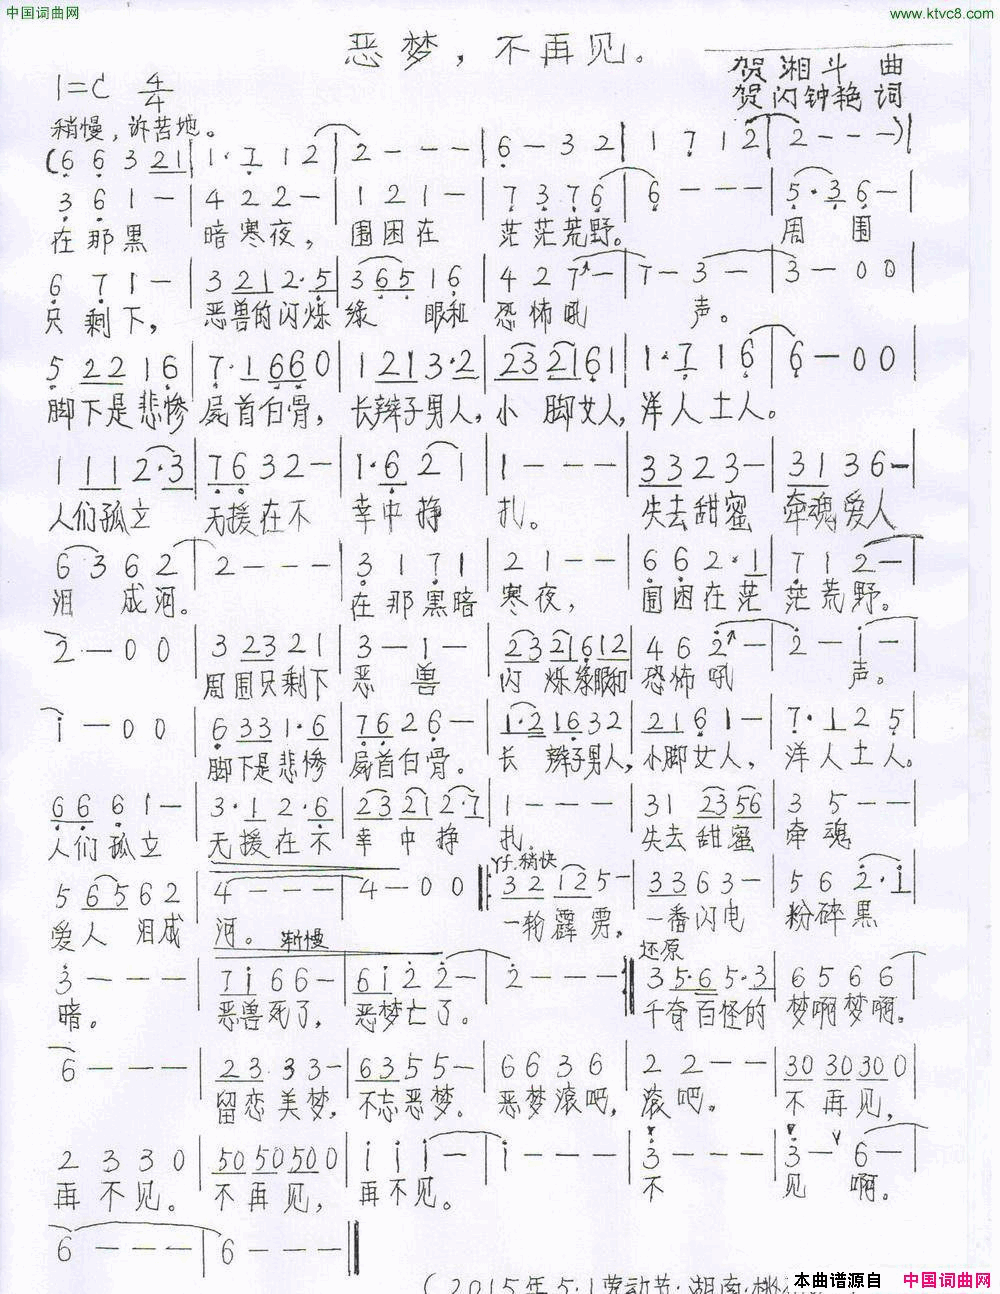 中国词曲网
www.ktvc8.com
恶梦，不再见。
贺湘斗 曲
贺闪钟艳 词
1=C 4/4
稍慢，诉苦地。
(6 6 3 21 | 1·7 1 2 | 2 - - - | 6 - 3 2 | 1 7 1 2 | 2 - - -) |
3 6 1 - | 4 2 2 - | 1 2 1 - | 7 3 7 6 | 6 - - - | 5·3 6 - |
在那黑 暗寒夜，围困在 茫茫荒野。 周 围
6 7 1 - | 3 21 2·5 | 3 65 1 6 | 4 2 7 - | 7 - 3 - | 3 - 0 0 |
只剩下，恶兽的闪烁绿 眼和 恐怖吼 声。
5 22 1 6 | 7·1 66 0 | 1 21 3·2 | 23 21 6 1 | 1·7 1 6 | 6 - 0 0 |
脚下是悲惨 屍首白骨，长辫子男人，小 脚女人，洋人土人。
1 11 2·3 | 76 3 2 - | 1·6 2 1 | 1 - - - | 33 2 3 - | 31 3 6 - |
人们孤立 无援在不 幸中挣 扎。 失去甜蜜 牵魂爱人
6·3 6 2 | 2 - - - | 3 1 7 1 | 2 1 - - | 6 6 2·1 | 7 1 2 - |
泪 成河。 在那黑暗 寒夜， 围困在茫 茫荒野。
2 - 0 0 | 3 23 2 1 | 3 - 1 - | 23 21 61 12 | 4 6 2 - | 2 - 1 - |
周围只剩下 恶 兽 闪 烁绿眼和 恐怖吼 声。
1 - 0 0 | 6 33 1·6 | 76 2 6 - | 1·2 16 3 2 | 21 6 1 - | 7·1 2 5 |
脚下是悲惨 屍首白骨。 长 辫子男人，小脚女人， 洋人土人。
6 6 6 1 - | 3·1 2·6 | 23 21 2·7 | 1 - - - | 31 23 56 | 3 5 - - |
人们孤立 无援在不 幸 中 挣 扎。 失去 甜蜜 牵 魂
稍快
5 65 6 2 | 4 - - - | 4 - 0 0 |: 32 12 5 - | 33 6 3 - | 5 6 2·1 |
爱人 泪成 河。 渐慢 一轮霹雳，一番闪电 粉碎黑
还原
3 - - - | 71 6 6 - | 61 2 2 - | 2 - - - :| 3 5·6 5·3 | 6 5 6 6 |
暗。 恶兽死了， 恶梦亡了。 千奇百怪的 梦啊梦啊。
6 - - - | 23·3 3 - | 63 5 5 - | 6 6 3 6 | 2 2 - - | 30 30 30 0 |
留恋美梦，不忘恶梦。恶梦滚吧，滚吧。 不再见，
2 3 3 0 | 50 50 50 0 | 1 1 1 - | 1 - - - | 3 - - - | 3 - 6 - |
再不见。 不再见， 再不见。 不 见 啊。
6 - - - | 6 - - - ‖
(2015年5·1劳动节·湖南·桃
本曲谱源自 中国词曲网